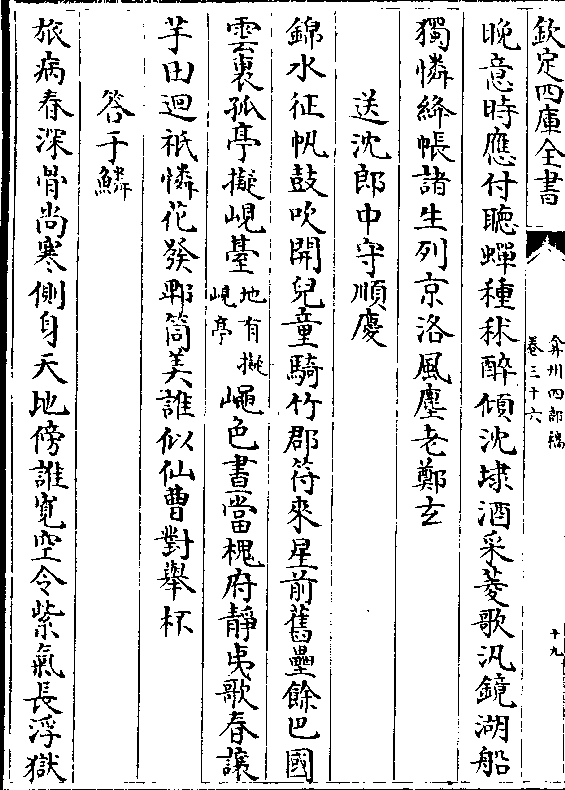 欽定四庫全書
弇州四部稿
卷三十六
十九
晚意時應付聽蟬種秫醉傾沈埭酒采菱歌汎鏡湖船
獨憐絳帳諸生列京洛風塵老鄭玄
送沈郎中守順慶
錦水征帆鼓吹開兒童騎竹郡符來星前舊壘餘巴國
雲裏孤亭擬峴臺地有擬峴亭
蠅色晝當槐府靜夷歌春讓
芋田迴秪憐花發郫筒美誰似仙曹對舉杯
答于鱗
旅病春深骨尚寒側身天地傍誰寛空令紫氣長浮獄